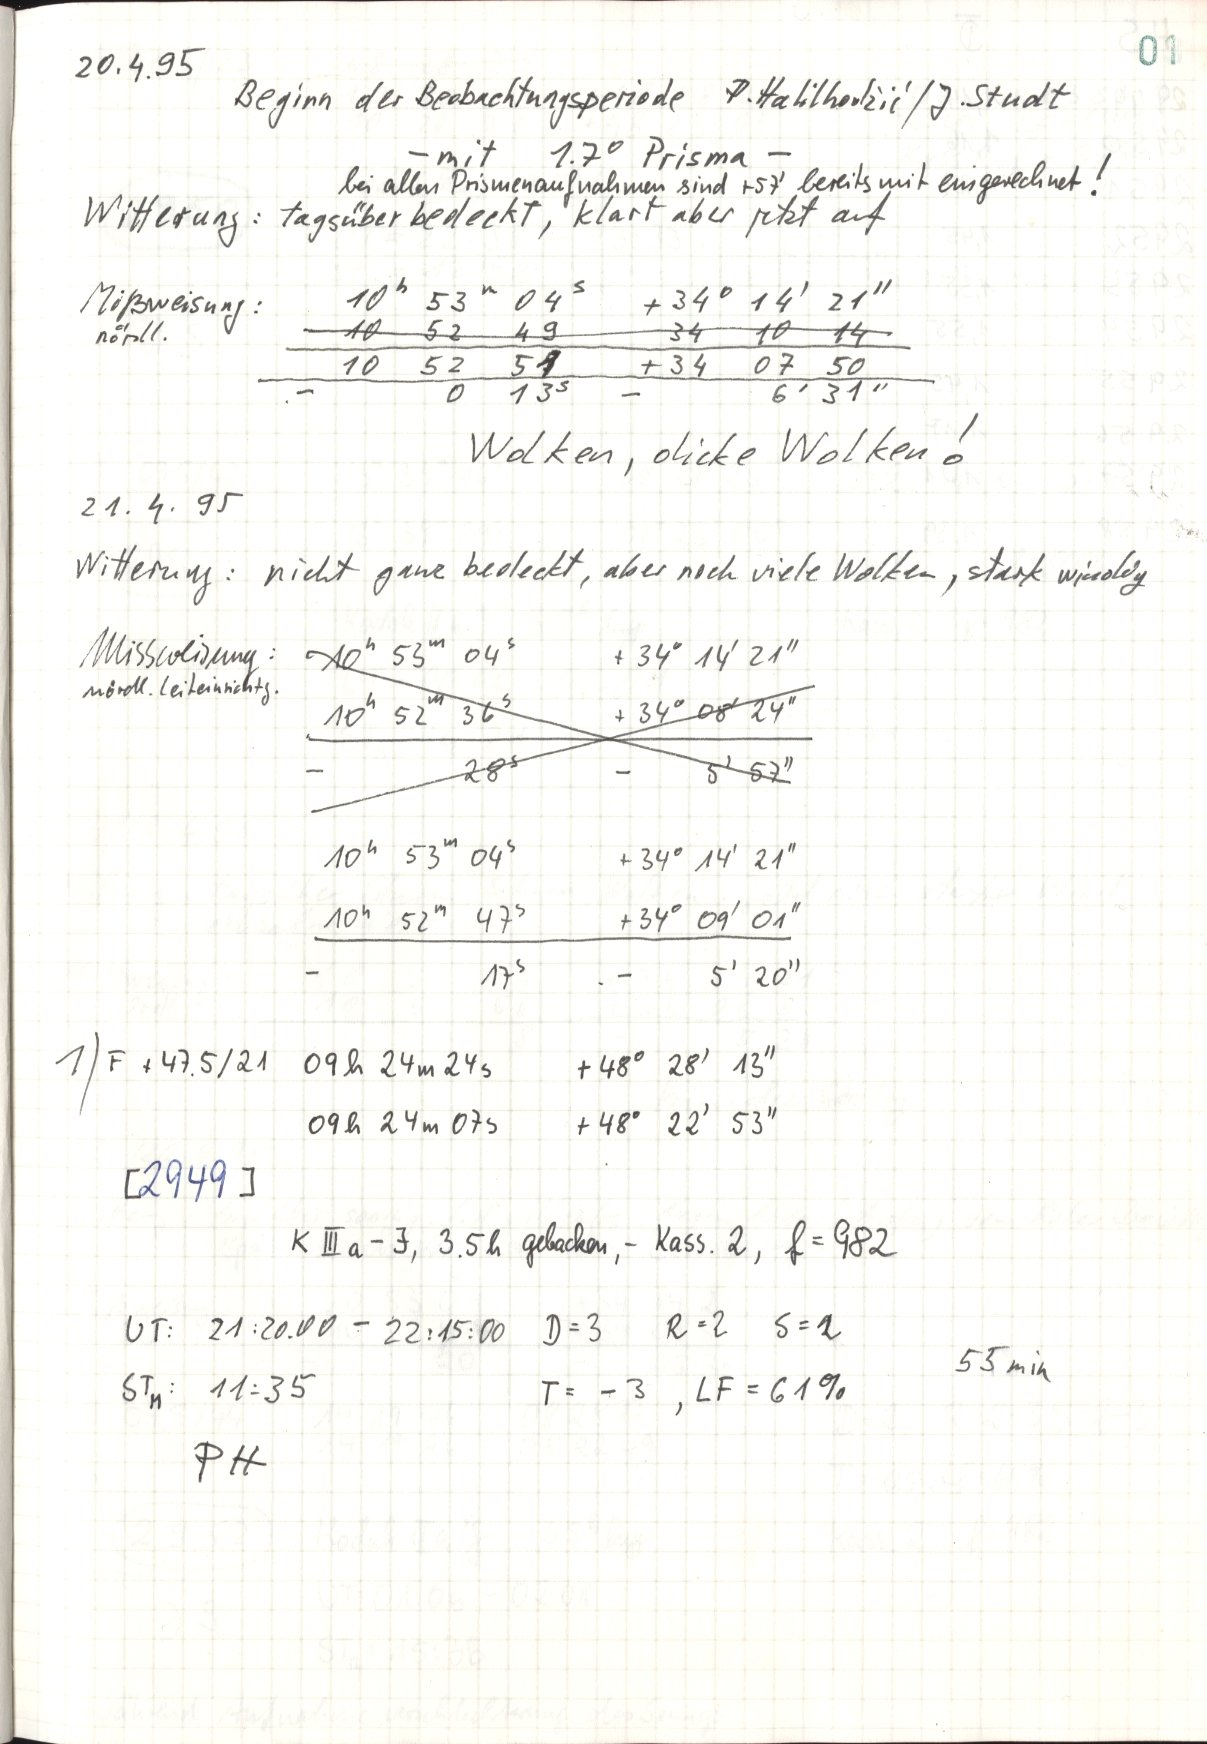 01
20.4.95
Beginn der Beobachtungsperiode P. Halilhodžić / J. Studt
– mit 1.7° Prisma –
bei allen Prismenaufnahmen sind +57' bereits mit eingerechnet!
Witterung: tagsüber bedeckt, klart aber jetzt auf
Mißweisung: 10h 53m 04s +34° 14' 21"
nördl. 10 52 49 34 10 14
10 52 51 +34 07 50
- 0 13s - 6' 31"
Wolken, dicke Wolken!
21. 4. 95
Witterung: nicht ganz bedeckt, aber noch viele Wolken, stark windig
Missweisung: 10h 53m 04s +34° 14' 21"
nördl. Leiteinrichtg.
10h 52m 36s +34° 08' 24"
- 28s - 5' 57"
10h 53m 04s +34° 14' 21"
10h 52m 47s +34° 09' 01"
- 17s - 5' 20"
1) F +47.5/21 09h 24m 24s +48° 28' 13"
09h 24m 07s +48° 22' 53"
[2949]
K IIIa-J, 3.5h gebacken, - Kass. 2, f = 982
UT: 21:20.00 - 22:15:00 D=3 R=2 S=2
55 min
STM: 11:35 T= -3, LF = 61%
PH